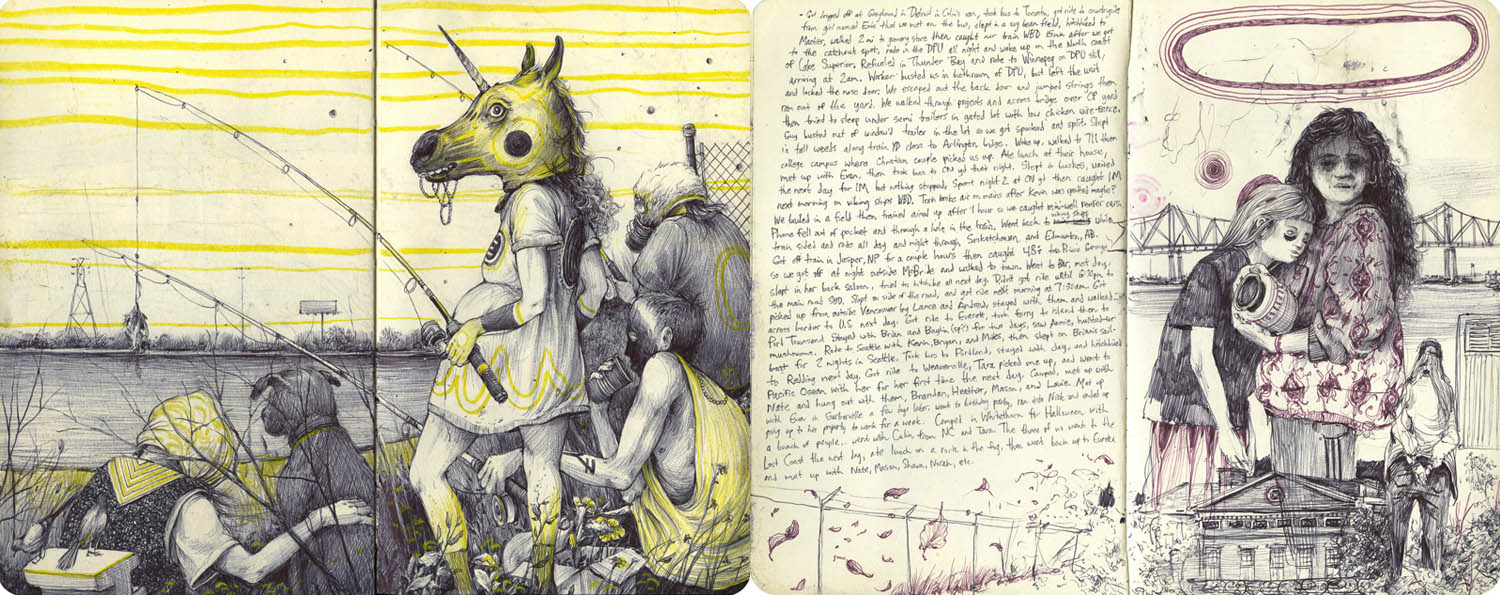 - Got dropped off at Greyhound in Detroit in Colin's van, took bus to Toronto, got ride to countryside
from girl named Erin that we met on the bus, slept in a soy bean field, hitchhiked to
Mactier, walked 2 mi to grocery store then caught our train WBD 15min after we got
to the catchout spot, rode in the DPU all night and woke up on the North coast
of Lake Superior. Refueled in Thunder Bay and rode to Winnipeg on DPU still,
arriving at 2am. Worker busted us in bathroom of DPU, but left the unit
and locked the nose door. We escaped out the back door and jumped strings then
ran out of the yard. We walked through projects and across bridge over CP yard
then tried to sleep under semi trailers in gated lot with low chicken wire fence.
Guy busted out of window'd trailer in the lot so we got spooked and split. Slept
in tall weeds along train YD close to Arlington bridge. Woke up, walked to 711 then
college campus where Christian couple picked us up. Ate lunch at their house,
met up with Evan, then took bus to CN yd that night. Slept in bushes, waited
the next day for IM but nothing stopped. Spent night 2 at CN yd then caught IM
next morning on viking ships WBD. Train broke air on mains after Kevin was spotted maybe?
We bailed in a field then trained aired up after 1 hour so we caught mini-well reefer cars.
Phone fell out of pocket and through a hole in the train. Went back to viking ships while
train sided and rode all day and night through Saskatchewan, and Edmonton, AB.
Got off train in Jasper, NP for a couple hours then caught 48s to Prince George,
so we got off at night outside McBride and walked to town. Went to Bar, met day,
slept in her back saloon, tried to hitchhike all next day. Didn't get ride until 6:30pm to
the main road SBD. Slept on side of the road, and got ride next morning at 7:30am. Got
picked up from outside Vancouver by Lance and Andrew, stayed with them and walked
across border to U.S. next day. Got ride to Everett, took ferry to island then to
Port Townsend. Stayed with Brian and Baylin (sp?) for two days, saw Annie, hunted for
mushrooms. Rode to Seattle with Kevin, Bryan, and Miles, then slept on Brian's sail-
boat for 2 nights in Seattle. Took bus to Portland, stayed with Jay, and hitchhiked
to Redding next day. Got ride to Weaverville, Tara picked me up, and went to
Pacific Ocean with her for her first time the next day. Camped, met up with
Nate and hung out with them, Brendan, Heather, Mason, and Laurie. Met up
with Evan in Garberville a few days later, went to birthday party, ran into Nick and ended up
going up to his property to work for a week. Camped in Whitethorn for Halloween with
a bunch of people... went with Calin from NC and Tara. The three of us went to the
Lost Coast the next day, ate lunch on a rock in the fog, then went back up to Eureka
and met up with Nate, Mason, Shawn, Norah, etc.